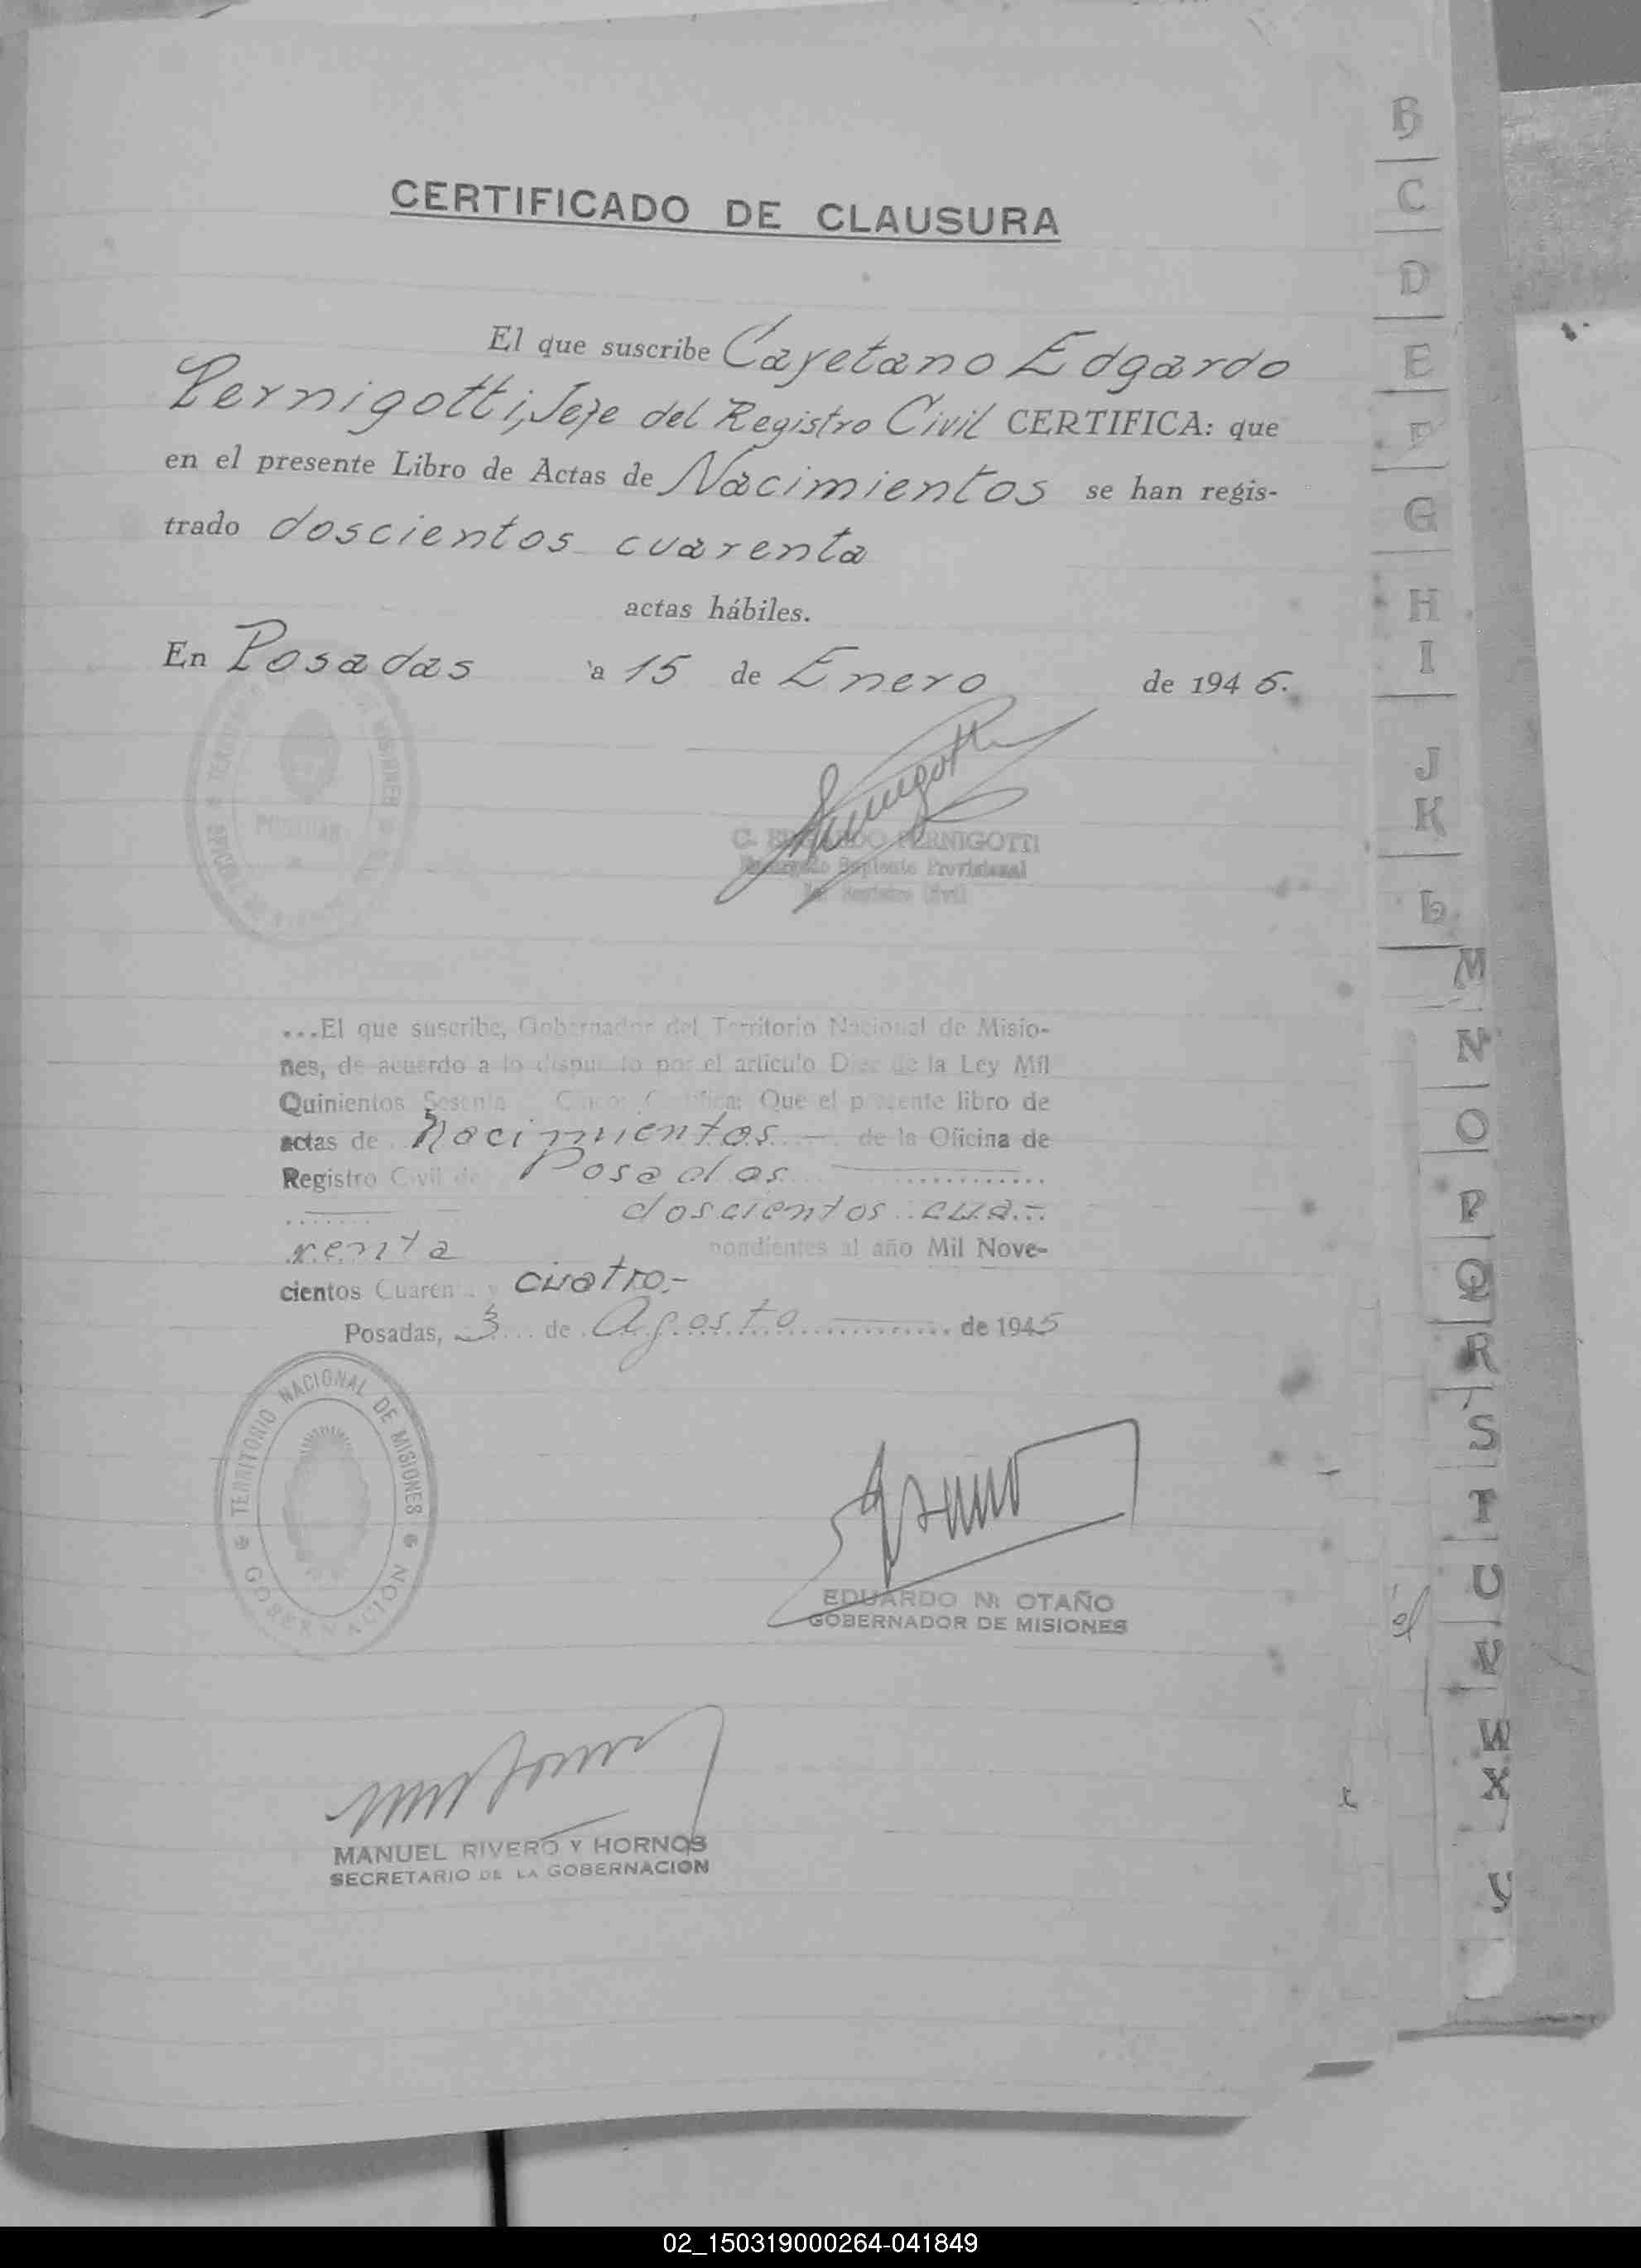 CERTIFICADO DE CLAUSURA
El que suscribe Cayetano Edgardo
Pernigotti, Jefe del Registro Civil CERTIFICA: que
en el presente Libro de Actas de Nacimientos se han regis-
trado doscientos cuarenta
actas hábiles.
En Posadas a 15 de Enero de 1945.
TERRITORIO MISIONES
POSADAS
C. EDGARDO PERNIGOTTI
Encargado Suplente Provisional
del Registro Civil
...El que suscribe, Gobernador del Territorio Nacional de Misio-
nes, de acuerdo a lo dispuesto por el artículo Diez de la Ley Mil
Quinientos Sesenta Cinco: Certifica: Que el presente libro de
actas de Nacimientos de la Oficina de
Registro Civil de Posadas
doscientos cua-
renta pondientes al año Mil Nove-
cientos Cuarenta y cuatro.-
Posadas, 3 de Agosto de 1945
TERRITORIO NACIONAL DE MISIONES
GOBERNACION
EDUARDO N. OTAÑO
GOBERNADOR DE MISIONES
MANUEL RIVERO Y HORNOS
SECRETARIO DE LA GOBERNACION
B
C
D
E
F
G
H
I
J
K
L
M
N
O
P
Q
R
S
T
U
V
W
X
Y
02_150319000264-041849